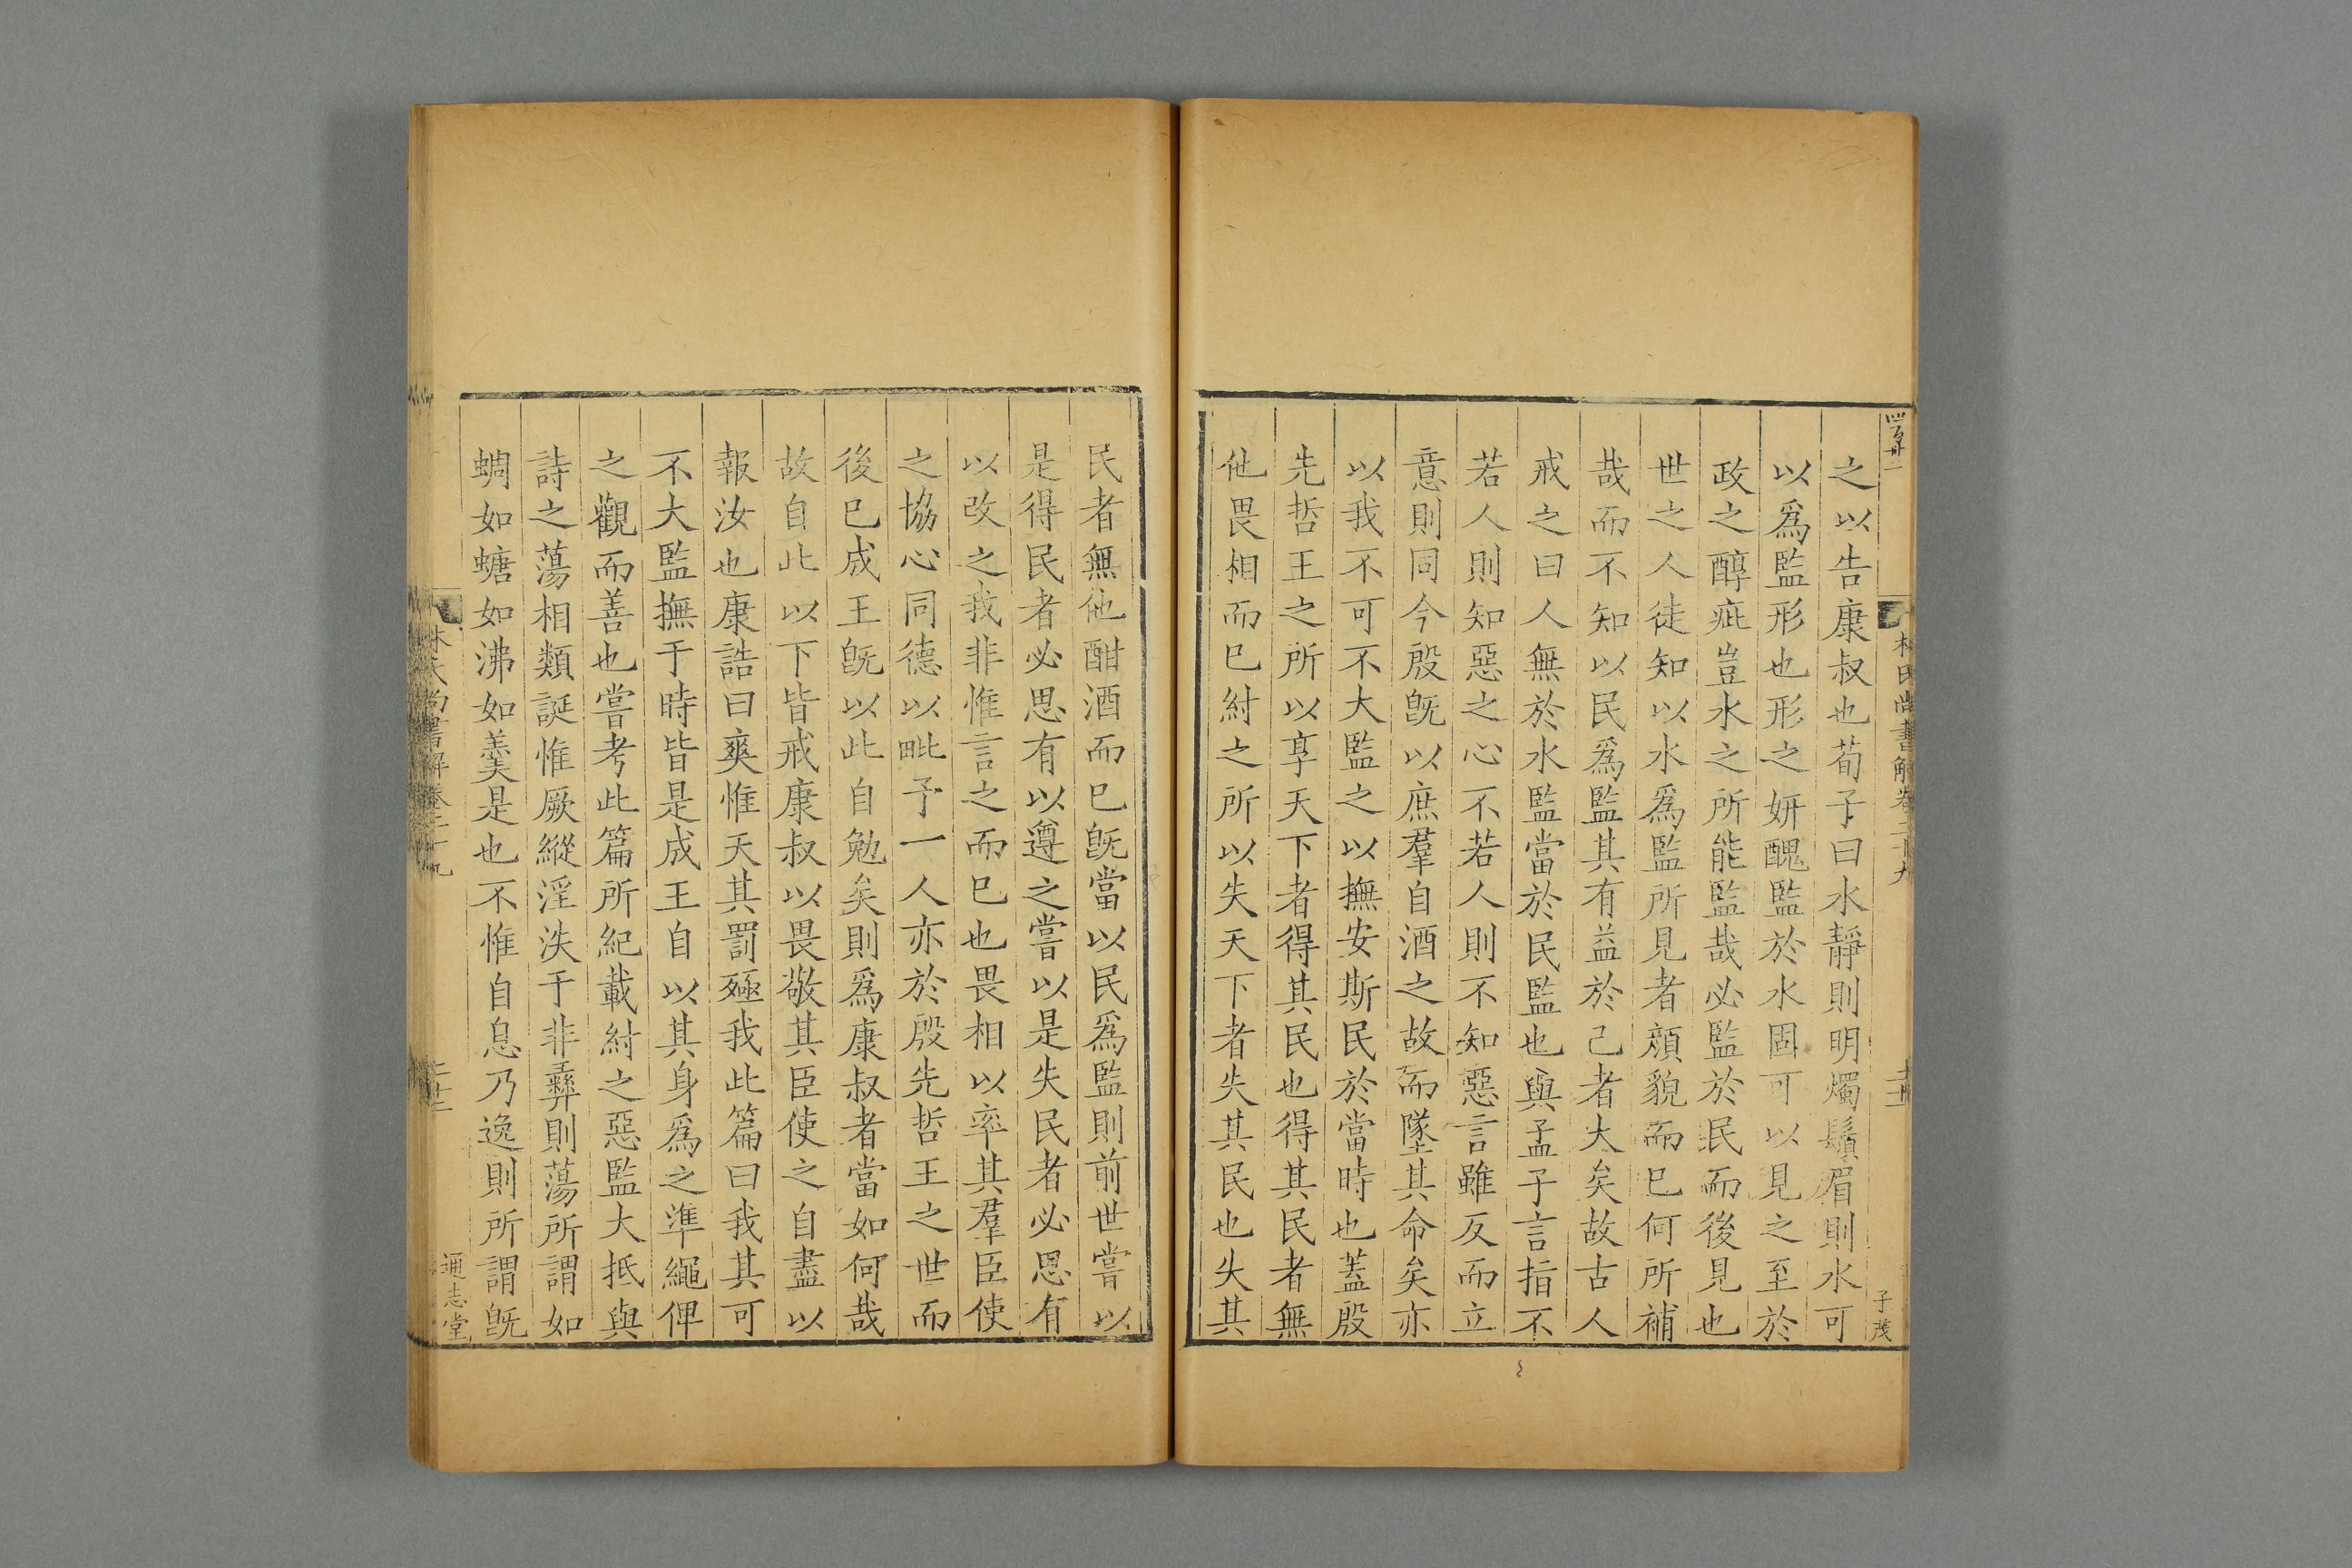 之以告康叔也荀子曰水靜則明燭鬚眉則水可
以爲監形也形之妍醜監於水固可以見之至於
政之醇疵豈水之所能監哉必監於民而後見也
世之人徒知以水爲監所見者顔貌而已何所補
哉而不知以民爲監其有益於己者大矣故古人
戒之曰人無於水監當於民監也與孟子言指不
若人則知惡之心不若人則不知惡言雖反而立
意則同今殷旣以庶羣自酒之故而墜其命矣亦
以我不可不大監之以撫安斯民於當時也蓋殷
先哲王之所以享天下者得其民也得其民者無
他畏相而已紂之所以失天下者失其民也失其
民者無他酣酒而已旣當以民爲監則前世嘗以
是得民者必思有以遵之嘗以是失民者必思有
以改之我非惟言之而已也畏相以率其羣臣使
之協心同德以毗予一人亦於殷先哲王之世而
後已成王旣以此自勉矣則爲康叔者當如何哉
故自此以下皆戒康叔以畏敬其臣使之自盡以
報汝也康誥曰爽惟天其罰殛我此篇曰我其可
不大監撫于時皆是成王自以其身爲之準繩俾
之觀而善也嘗考此篇所紀載紂之惡監大抵與
詩之蕩相類誕惟厥縱淫泆于非彝則蕩所謂如
蜩如螗如沸如羹是也不惟自息乃逸則所謂旣
林氏尚書解卷二十九
子茂
通志堂